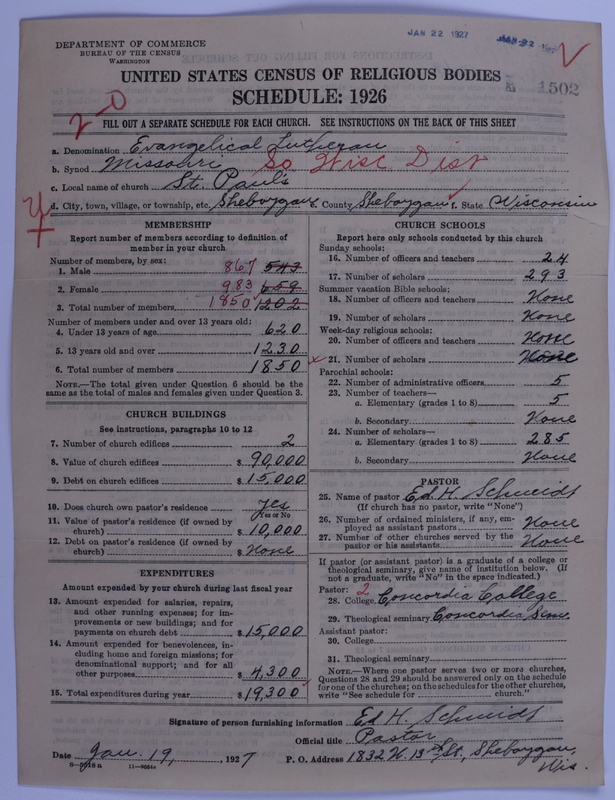 JAN 22 1927
DEPARTMENT OF COMMERCE
BUREAU OF THE CENSUS
WASHINGTON
1502
UNITED STATES CENSUS OF RELIGIOUS BODIES
SCHEDULE: 1926
2-0
FILL OUT A SEPARATE SCHEDULE FOR EACH CHURCH. SEE INSTRUCTIONS ON THE BACK OF THIS SHEET
a. Denomination Evangelical Lutheran
b. Synod Missouri So Wisc Dist
c. Local name of church St. Paul's
d. City, town, village, or township, etc. Sheboygan e. County Sheboygan f. State Wisconsin
MEMBERSHIP
Report number of members according to definition of
member in your church.
Number of members, by sex:
1. Male 867 543
2. Female 983 659
3. Total number of members 1850 1202
Number of members under and over 13 years old:
4. Under 13 years of age 620
5. 13 years old and over 1230
6. Total number of members 1850
NOTE.—The total given under Question 6 should be the
same as the total of males and females given under Question 3.
CHURCH BUILDINGS
See instructions, paragraphs 10 to 12
7. Number of church edifices 2
8. Value of church edifices $ 90,000
9. Debt on church edifices $ 15,000
10. Does church own pastor's residence yes
(Yes or No)
11. Value of pastor's residence (if owned by
church) $ 10,000
12. Debt on pastor's residence (if owned by
church) $ None
EXPENDITURES
Amount expended by your church during last fiscal year
13. Amount expended for salaries, repairs,
and other running expenses; for im-
provements or new buildings; and for
payments on church debt $ 15,000
14. Amount expended for benevolences, in-
cluding home and foreign missions; for
denominational support; and for all
other purposes $ 4,300
15. Total expenditures during year $ 19,300
CHURCH SCHOOLS
Report here only schools conducted by this church
Sunday schools:
16. Number of officers and teachers 24
17. Number of scholars 293
Summer vacation Bible schools:
18. Number of officers and teachers None
19. Number of scholars None
Week-day religious schools:
20. Number of officers and teachers None
21. Number of scholars None
Parochial schools:
22. Number of administrative officers 5
23. Number of teachers—
a. Elementary (grades 1 to 8) 5
b. Secondary None
24. Number of scholars—
a. Elementary (grades 1 to 8) 285
b. Secondary None
PASTOR
25. Name of pastor Ed. H. Schmidt
(If church has no pastor, write "None")
26. Number of ordained ministers, if any, em-
ployed as assistant pastors None
27. Number of other churches served by the
pastor or his assistants None
If pastor (or assistant pastor) is a graduate of a college or
theological seminary, give name of institution below. (If
not a graduate, write "No" in the space indicated.)
Pastor: 2
28. College Concordia College
29. Theological seminary Concordia Sem.
Assistant pastor:
30. College
31. Theological seminary
NOTE.—Where one pastor serves two or more churches,
Questions 28 and 29 should be answered only on the schedule
for one of the churches; on the schedules for the other churches,
write "See schedule for church."
Signature of person furnishing information Ed H. Schmidt
Official title Pastor
Date Jan. 19, 1927 P. O. Address 1832 N. 13th St., Sheboygan,
Wis.